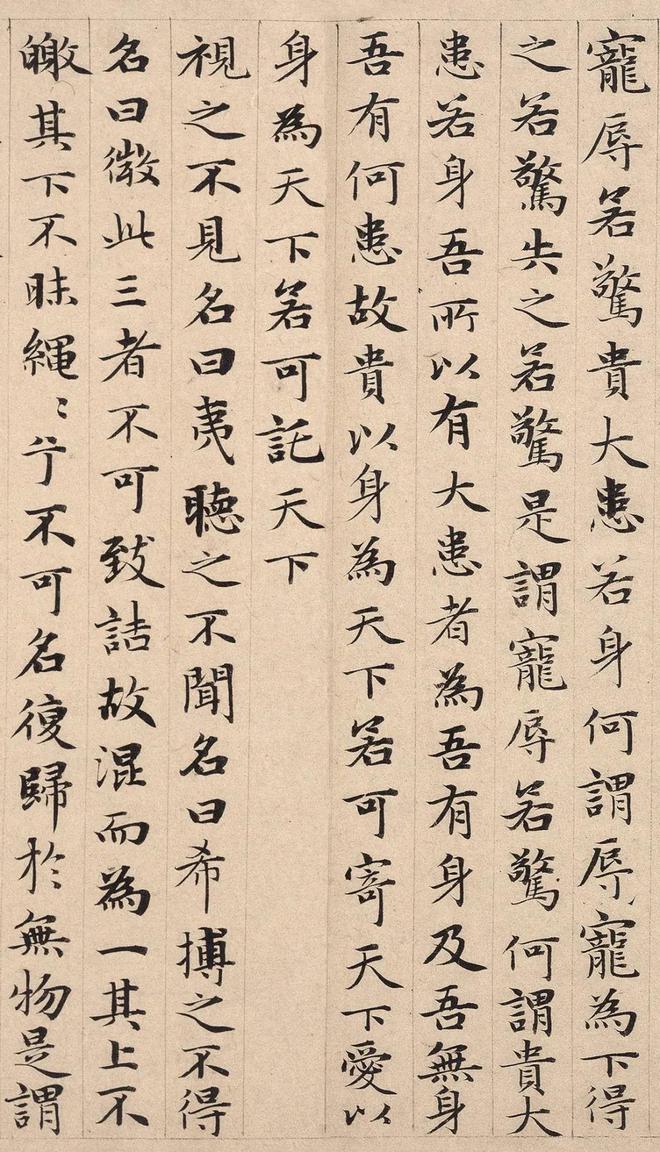 寵辱若驚貴大患若身何謂辱寵為下得
之若驚失之若驚是謂寵辱若驚何謂貴大
患若身吾所以有大患者為吾有身及吾無身
吾有何患故貴以身為天下若可寄天下愛以
身為天下若可託天下
視之不見名曰夷聽之不聞名曰希搏之不得
名曰微此三者不可致詰故混而為一其上不
皦其下不昧繩〻兮不可名復歸於無物是謂